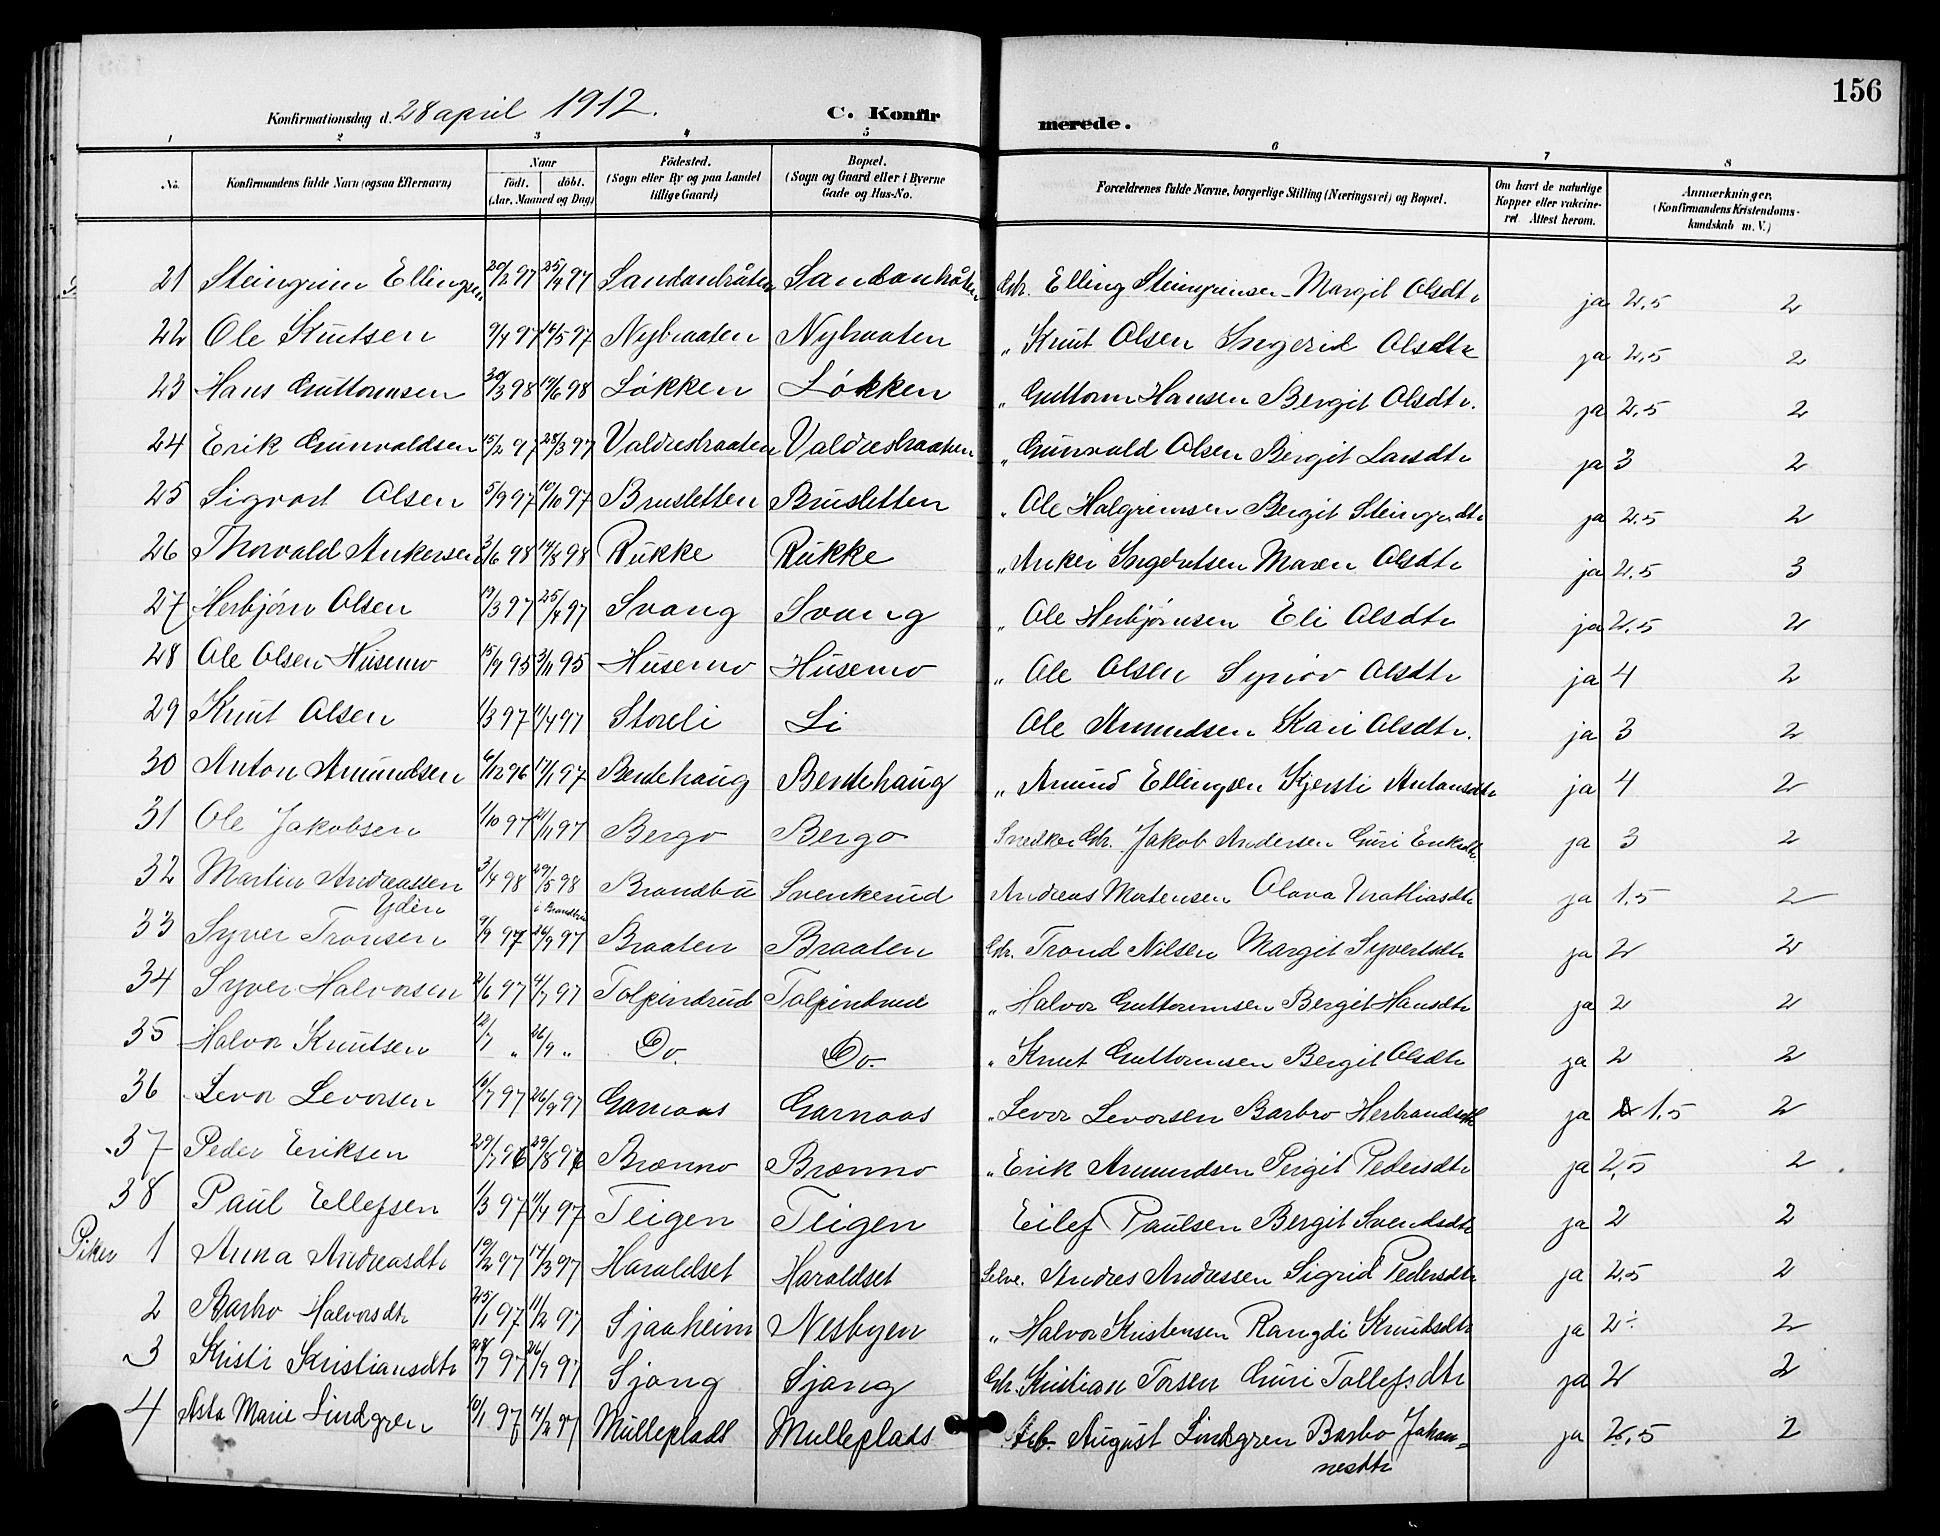 156
Konfirmationsdag d. 28 april 1912. C. Konfirmerede.
1 2 3 4 5 6 7 8
No. Konfirmandens fulde Navn (ogsaa Efternavn) Naar födt. döbt. (Aar, Maaned og Dag) Födested. (Sogn eller By og paa Landet tillige Gaard) Bopæl. (Sogn og Gaard eller i Byerne Gade og Hus-No. Forældrenes fulde Navne, borgerlige Stilling (Næringsvei) og Bopæl. Om havt de naturlige Kopper eller vakcineret. Attest herom. Anmærkninger, (Konfirmandens Kristendomskundskab m. V.)
21 Steingrim Ellingsen 20/2 97 25/4 97 Sandanbråten Sandanbråten Gbr. Elling Steingrimsen Margit Olsdtr ja 2,5 2
22 Ole Knutsen 9/4 97 16/5 97 Nybraaten Nybraaten " Knut Olsen Ingerid Olsdtr ja 2,5 2
23 Hans Guttormsen 30/3 98 19/6 98 Løkken Løkken " Guttorm Hansen Bergit Olsdtr. ja 2,5 2
24 Erik Gunvaldsen 15/2 97 28/3 97 Valdresbraaten Valdresbraaten " Gunvald Olsen Bergit Larsdtr ja 3 2
25 Sigvart Olsen 5/9 97 10/10 97 Brusletten Brusletten " Ole Halgrimsen Bergit Steingrdtr ja 2,5 2
26 Thorvald Ankersen 3/6 98 14/8 98 Rukke Rukke " Anker Ingebretsen Maren Olsdtr ja 2,5 3
27 Herbjørn Olsen 19/3 97 25/4 97 Svang Svang " Ole Herbjørnsen Eli Olsdtr ja 2,5 2
28 Ole Olsen Husemo 15/9 95 3/11 95 Husemo Husemo " Ole Olsen Synøv Olsdtr ja 4 2
29 Knut Olsen 1/3 97 11/4 97 Storeli Li Ole Amundsen Kari Olsdtr. ja 3 2
30 Anton Amundsen 6/12 96 17/1 97 Bentehaug Bentehaug " Amund Ellingsen Kjersti Antonsdtr ja 4 2
31 Ole Jakobsen 1/10 97 21/11 97 Bergo Bergo Snedker Gbr. Jakob Andersen Guri Eriksdtr. ja 3 2
32 Martin Andreassen Yden 3/4 98 29/5 98 i Brandbu Brandbu Svenkerud Andreas Mortensen Olava Mathiasdtr ja 1,5 2
33 Syver Tronsen 9/9 97 26/9 97 Braaten Braaten Gbr. Trond Nilsen Margit Syvertsdtr ja 2 2
34 Syver Halvorsen 21/6 97 4/7 97 Tolpinrud Tolpinrud " Halvor Guttormsen Bergit Hansdtr ja 2 2
35 Halvor Knutsen 12/7 " 26/9 " Do. Do. " Knut Guttormsen Bergit Olsdtr ja 2 2
36 Levor Levorsen 16/7 97 26/9 97 Garnaas Garnaas " Levor Levorsen Barbro Herbrandsdtr ja 1,5 2
37 Peder Eriksen 29/7 96 29/8 96 Brenno Brenno " Erik Amundsen Bergit Pedersdtr ja 2,5 2
38 Paul Ellefsen 1/3 97 11/4 97 Teigen Teigen Eilef Paulsen Bergit Svendsdtr ja 2 2
Piker 1 Anna Andreasdtr 19/2 97 14/3 97 Haraldset Haraldset Selve. Andres Andressen Sigrid Pedersdtr ja 2,5 2
2 Barbro Halvorsdtr 25/1 97 11/2 97 Sjaaheim Nesbyen " Halvor Kristensen Rangdi Knudsdtr ja 2÷ 2
3 Kristi Kristiansdtr 24/7 97 26/9 97 Sjong Sjong Gbr. Kristian Torsen Guri Tollefsdtr ja 2 2
4 Asta Marie Lindgren 10/1 97 14/2 97 Mulleplads Mulleplads Arb. August Lindgren Barbo Johannesdtr ja 2,5 2